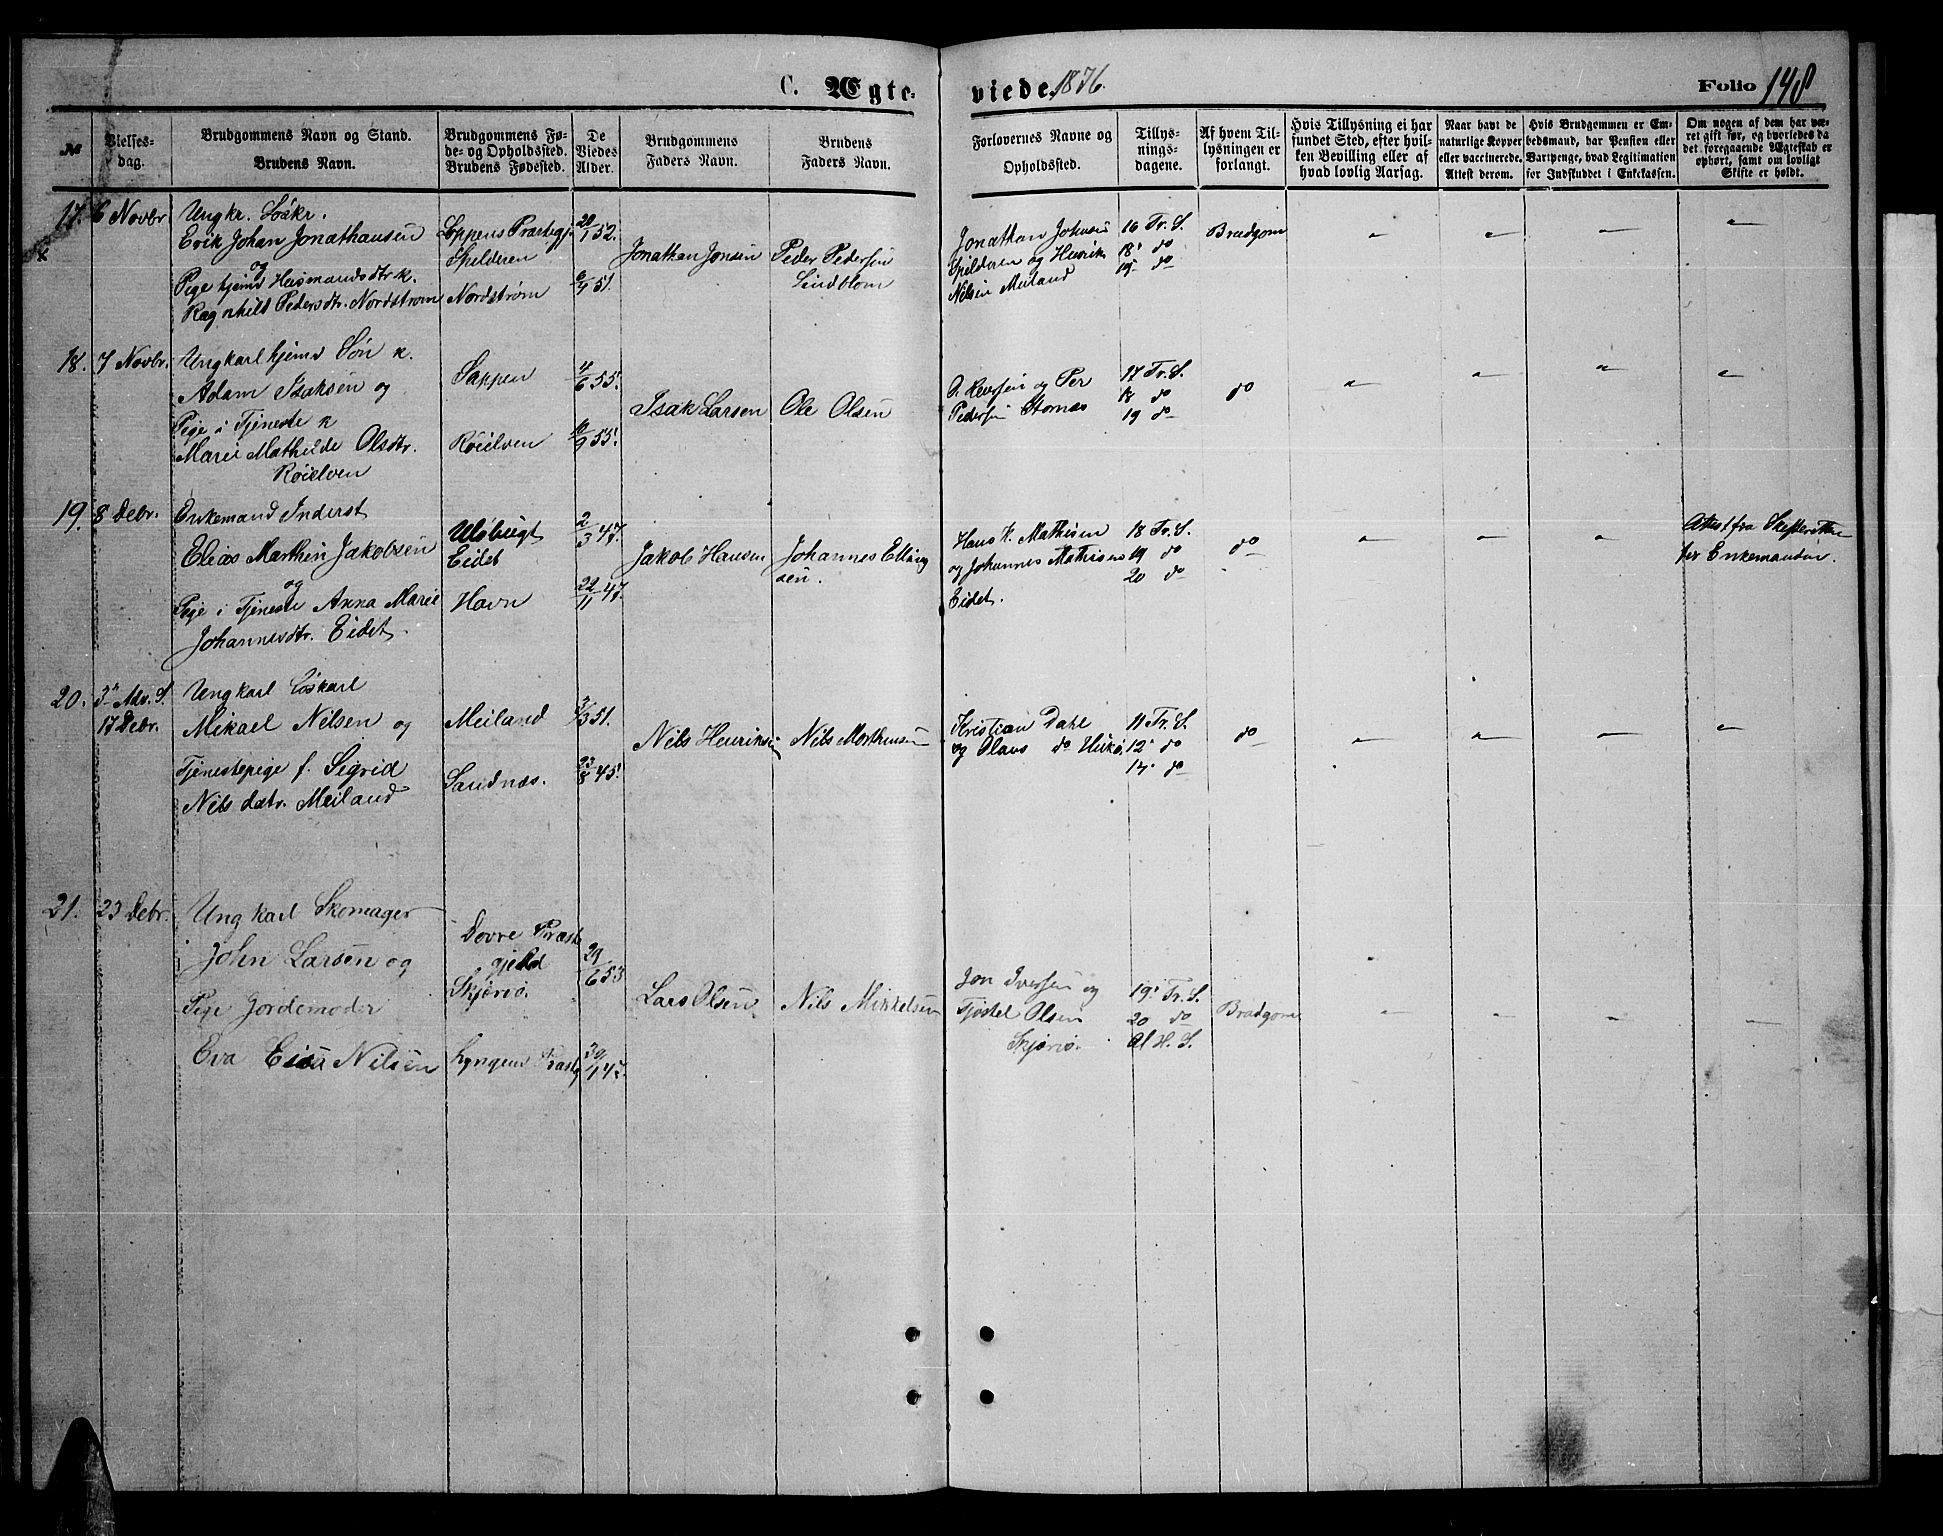 C. Ægte-viede. 1876. Folio 148
№
Vielses-
dag.
Brudgommens Navn og Stand.
Brudens Navn.
Brudgommens Fø-
de- og Opholdssted.
Brudens Fødested.
De
Viedes
Alder.
Brudgommens
Faders Navn.
Brudens
Faders Navn.
Forlovernes Navne og
Opholdssted.
Tillys-
nings-
dagene.
Af hvem Til-
lysningen er
forlangt.
Hvis Tillysning ei har
fundet Sted, efter hvil-
ken Bevilling eller af
hvad lovlig Aarsag.
Naar havt de
naturlige Kopper
eller vaccinerede.
Attest derom.
Hvis Brudgommen er Em-
bedsmand, har Pension eller
Vartpenge, hvad Legitimation
for Indskuddet i Enkekassen.
Om nogen af dem har væ-
ret gift før, og hvorledes da
det foregaaende Ægteskab er
ophørt, samt om lovligt
Skifte er holdt.
17. 6 Novbr
Ungkr. Løskr.
Erik Johan Jonathansen
og
Pige hjemd Husmandsdtr k.
Ragnhild Pedersdtr. Nordstrøm
Loppens Præstegj
Spilderen
Nordstrøm
20/1 52.
6/4 51.
Jonathan Jonsen
Peder Pedersen
Lindblom
Jonathan Johnsen
Spilderen og Henrik
Nilsen Meiland
16 Tr. S.
18' do
19' do
Brudgom
18. 7 Novbr.
Ungkarl hjemd Søn k.
Adam Isaksen og
Pige i Tjeneste k
Marie Mathilde Olsdtr.
Røielven
Sappen
Røielven
4/6 55.
10/9 55.
Isak Larsen
Ole Olsen
O. Iversen og Per
Pedersen Stornæs
17 Tr. S.
18 do
19 do
do
19. 8 Debr.
Enkemand Inderst
Elias Marthin Jakobsen
og
Pige i Tjeneste Anna Marie
Johannesdtr. Eidet.
Uløbugt
Eidet
Havn
2/3 47.
22/11 47.
Jakob Hansen
Johannes Elling
sen.
Hans K. Mathisen
og Johannes Mathisen
Eidet.
18 Tr. S.
19 do
20 do
do
Attest fra Skifteretten
for Enkemanden
20. 3die Adv. S.
17 Debr.
Ungkarl Løskarl
Mikael Nilsen og
Tjenestepige f. Sigrid
Nils datr. Meiland
Meiland
Sandnæs.
3/3 51.
23/8 45.
Nils Henriksen
Nils Morthensen
Kristian Dahl
og Olaus do Hukø.
11 Tr. S.
12' do
14' do
do
21. 23 Debr.
Ungkarl Skomager
John Larsen og
Pige Jordemoder
Eva Nilsen
Dovre Præste
gjeld
Skjervø.
Lyngens Præstg
29/6 53
30/1 45.
Lars Olsen
Nils Mikkelsen
Jon Iversen og
Tjøstel Olsen
Skjervø.
19' Tr. S.
20 do
Al H. S.
Brudgom